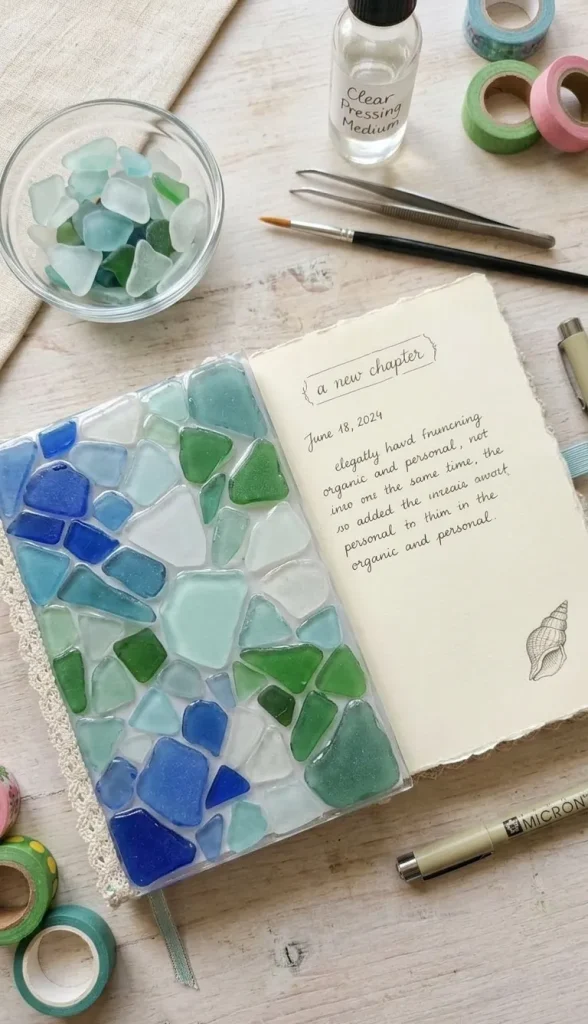 Clear
Pressing
Medium
a new chapter
June 18, 2024
elegatly havd fnuncning
organic and personal, not
into one the same time, the
so added the inreais awort,
personal to thim in the
organic and personal.
MICRON